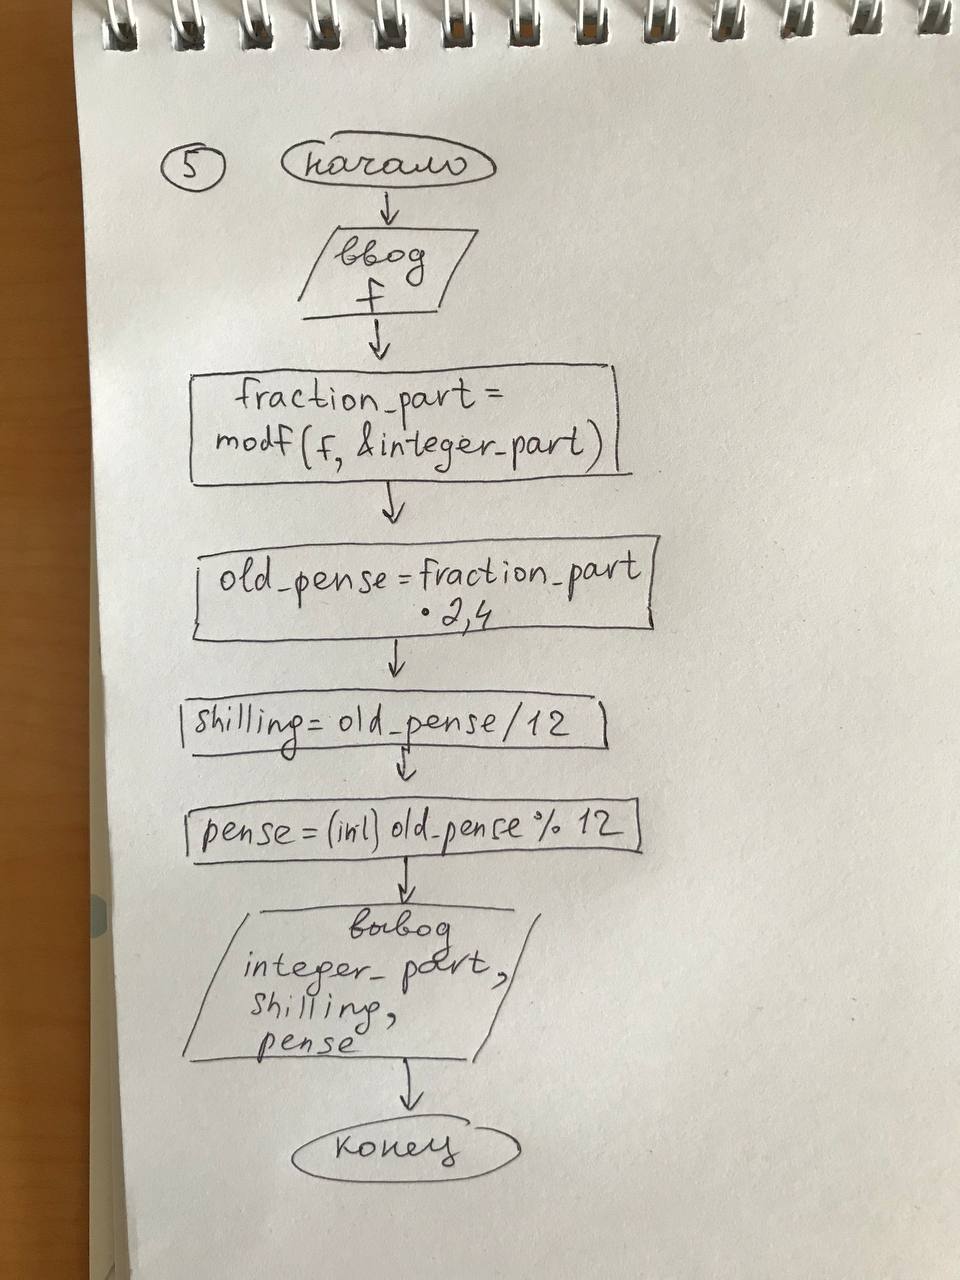 5 начало
ввод
f
fraction_part =
modf(f, &integer_part)
old_pense = fraction_part
• 2,4
shilling = old_pense / 12
pense = (int) old_pense % 12
вывод
integer_part,
shilling,
pense
конец